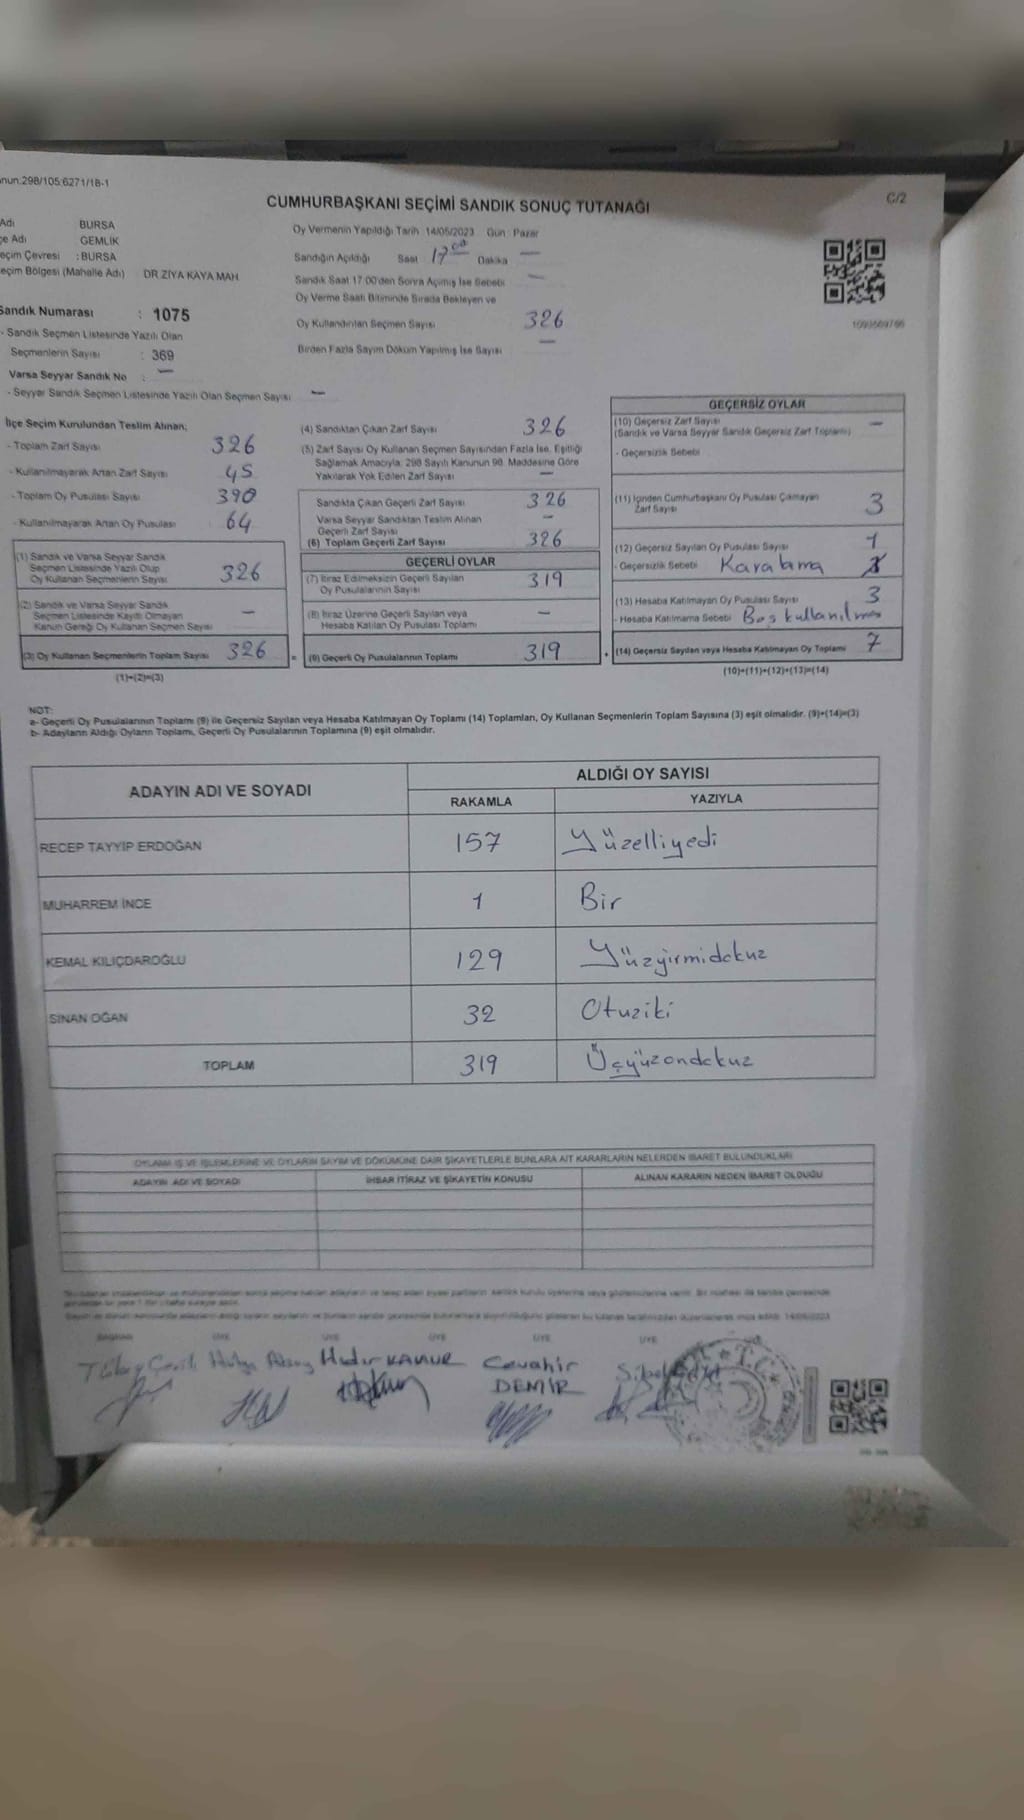 nun:298/105:6271/18-1
C/2
CUMHURBAŞKANI SEÇİMİ SANDIK SONUÇ TUTANAĞI
Adı BURSA
çe Adı GEMLİK
eçim Çevresi : BURSA
eçim Bölgesi (Mahalle Adı) DR.ZİYA KAYA MAH
Sandık Numarası : 1075
- Sandık Seçmen Listesinde Yazılı Olan
Seçmenlerin Sayısı : 369
Varsa Seyyar Sandık No : —
- Seyyar Sandık Seçmen Listesinde Yazılı Olan Seçmen Sayısı —
Oy Vermenin Yapıldığı Tarih 14/05/2023 Gün : Pazar
Sandığın Açıldığı Saat 17 00 Dakika —
Sandık Saat 17:00'den Sonra Açılmış İse Sebebi —
Oy Verme Saati Bitiminde Sırada Bekleyen ve
Oy Kullandırılan Seçmen Sayısı 326
Birden Fazla Sayım Döküm Yapılmış İse Sayısı —
İlçe Seçim Kurulundan Teslim Alınan;
- Toplam Zarf Sayısı : 326
- Kullanılmayarak Artan Zarf Sayısı : 45
- Toplam Oy Pusulası Sayısı : 390
- Kullanılmayarak Artan Oy Pusulası : 64
(1) Sandık ve Varsa Seyyar Sandık
Seçmen Listesinde Yazılı Olup
Oy Kullanan Seçmenlerin Sayısı 326
(2) Sandık ve Varsa Seyyar Sandık
Seçmen Listesinde Kayıtlı Olmayan
Kanun Gereği Oy Kullanan Seçmen Sayısı —
(3) Oy Kullanan Seçmenlerin Toplam Sayısı 326
(1)+(2)=(3)
(4) Sandıktan Çıkan Zarf Sayısı 326
(5) Zarf Sayısı Oy Kullanan Seçmen Sayısından Fazla İse, Eşitliği
Sağlamak Amacıyla; 298 Sayılı Kanunun 98. Maddesine Göre
Yakılarak Yok Edilen Zarf Sayısı —
Sandıkta Çıkan Geçerli Zarf Sayısı 326
Varsa Seyyar Sandıktan Teslim Alınan
Geçerli Zarf Sayısı —
(6) Toplam Geçerli Zarf Sayısı 326
GEÇERLİ OYLAR
(7) İtiraz Edilmeksizin Geçerli Sayılan
Oy Pusulalarının Sayısı 319
(8) İtiraz Üzerine Geçerli Sayılan veya
Hesaba Katılan Oy Pusulası Toplamı —
= (9) Geçerli Oy Pusulalarının Toplamı 319
GEÇERSİZ OYLAR
(10) Geçersiz Zarf Sayısı —
(Sandık ve Varsa Seyyar Sandık Geçersiz Zarf Toplamı)
- Geçersizlik Sebebi
(11) İçinden Cumhurbaşkanı Oy Pusulası Çıkmayan
Zarf Sayısı 3
(12) Geçersiz Sayılan Oy Pusulası Sayısı 1
- Geçersizlik Sebebi Karalama
(13) Hesaba Katılmayan Oy Pusulası Sayısı 3
- Hesaba Katılmama Sebebi Boş kullanılmış
+ (14) Geçersiz Sayılan veya Hesaba Katılmayan Oy Toplamı 7
(10)+(11)+(12)+(13)=(14)
NOT:
a- Geçerli Oy Pusulalarının Toplamı (9) ile Geçersiz Sayılan veya Hesaba Katılmayan Oy Toplamı (14) Toplamları, Oy Kullanan Seçmenlerin Toplam Sayısına (3) eşit olmalıdır. (9)+(14)=(3)
b- Adayların Aldığı Oyların Toplamı, Geçerli Oy Pusulalarının Toplamına (9) eşit olmalıdır.
ADAYIN ADI VE SOYADI ALDIĞI OY SAYISI
RAKAMLA YAZIYLA
RECEP TAYYİP ERDOĞAN 157 Yüzelliyedi
MUHARREM İNCE 1 Bir
KEMAL KILIÇDAROĞLU 129 Yüzyirmidokuz
SİNAN OĞAN 32 Otuziki
TOPLAM 319 Üçyüzondokuz
OYLAMA İŞ VE İŞLEMLERİNE VE OYLARIN SAYIM VE DÖKÜMÜNE DAİR ŞİKAYETLERLE BUNLARA AİT KARARLARIN NELERDEN İBARET BULUNDUKLARI
ADAYIN ADI VE SOYADI İHBAR İTİRAZ VE ŞİKAYETİN KONUSU ALINAN KARARIN NEDEN İBARET OLDUĞU
BAŞKAN ÜYE ÜYE ÜYE ÜYE ÜYE
Hıdır KANUR Cevahir
DEMİR
T.C.